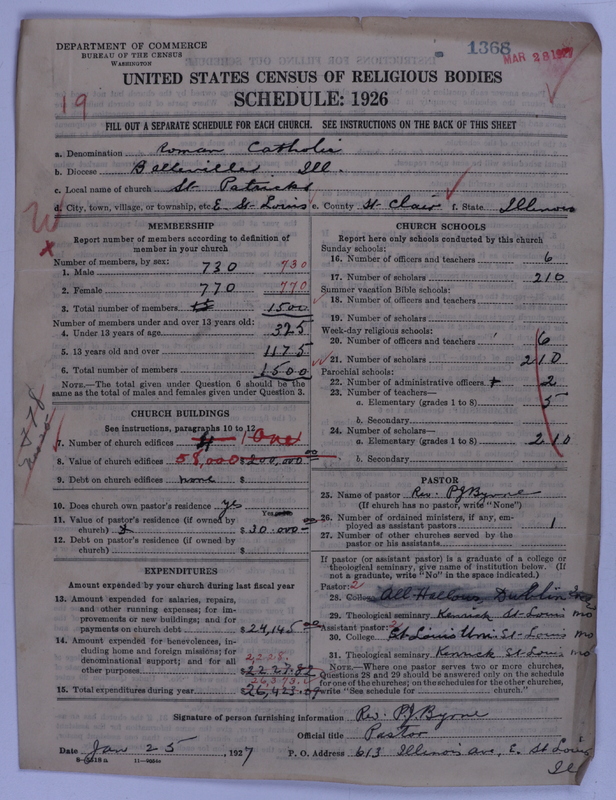 DEPARTMENT OF COMMERCE
BUREAU OF THE CENSUS
WASHINGTON
1368
MAR 28 1927
UNITED STATES CENSUS OF RELIGIOUS BODIES
SCHEDULE: 1926
19
FILL OUT A SEPARATE SCHEDULE FOR EACH CHURCH. SEE INSTRUCTIONS ON THE BACK OF THIS SHEET
a. Denomination Roman Catholic
b. Diocese Belleville Ill.
c. Local name of church St Patricks
d. City, town, village, or township, etc E. St. Louis e. County St Clair f. State Illinois
MEMBERSHIP
Report number of members according to definition of
member in your church
Number of members, by sex:
1. Male 730 730
2. Female 770 770
3. Total number of members 1500
Number of members under and over 13 years old:
4. Under 13 years of age 325
5. 13 years old and over 1175
6. Total number of members 1500
NOTE.—The total given under Question 6 should be the
same as the total of males and females given under Question 3.
CHURCH BUILDINGS
See instructions, paragraphs 10 to 12
7. Number of church edifices 1 One
8. Value of church edifices 58,000 $200,000.00
9. Debt on church edifices none $
10. Does church own pastor's residence yes
Yes
11. Value of pastor's residence (if owned by
church) $30.000.00
12. Debt on pastor's residence (if owned by
church) $
EXPENDITURES
Amount expended by your church during last fiscal year
13. Amount expended for salaries, repairs,
and other running expenses; for im-
provements or new buildings; and for
payments on church debt $24,145.00
14. Amount expended for benevolences, in-
cluding home and foreign missions; for
denominational support; and for all
other purposes 2,228. $2227.82
26,373.
15. Total expenditures during year $26,423.09
CHURCH SCHOOLS
Report here only schools conducted by this church
Sunday schools:
16. Number of officers and teachers 6
17. Number of scholars 210
Summer vacation Bible schools:
18. Number of officers and teachers
19. Number of scholars
Week-day religious schools:
20. Number of officers and teachers 6
21. Number of scholars 210
Parochial schools:
22. Number of administrative officers 2
23. Number of teachers—
a. Elementary (grades 1 to 8) 5
b. Secondary
24. Number of scholars—
a. Elementary (grades 1 to 8) 210
b. Secondary
PASTOR
25. Name of pastor Rev. P J Byrne
(If church has no pastor, write "None")
26. Number of ordained ministers, if any, em-
ployed as assistant pastors 1
27. Number of other churches served by the
pastor or his assistants
If pastor (or assistant pastor) is a graduate of a college or
theological seminary, give name of institution below. (If
not a graduate, write "No" in the space indicated.)
Pastor: 2
28. College All Hallows Dublin Ire
29. Theological seminary Kenrick St-Louis Mo
Assistant pastor:
30. College St Louis Uni St-Louis Mo
31. Theological seminary Kenrick St. Louis Mo
NOTE.—Where one pastor serves two or more churches,
Questions 28 and 29 should be answered only on the schedule
for one of the churches; on the schedules for the other churches,
write "See schedule for church."
Signature of person furnishing information Rev. P.J. Byrne
Official title Pastor
Date Jan 25, 1927 P. O. Address 613 Illinois ave, E. St Louis
Ill